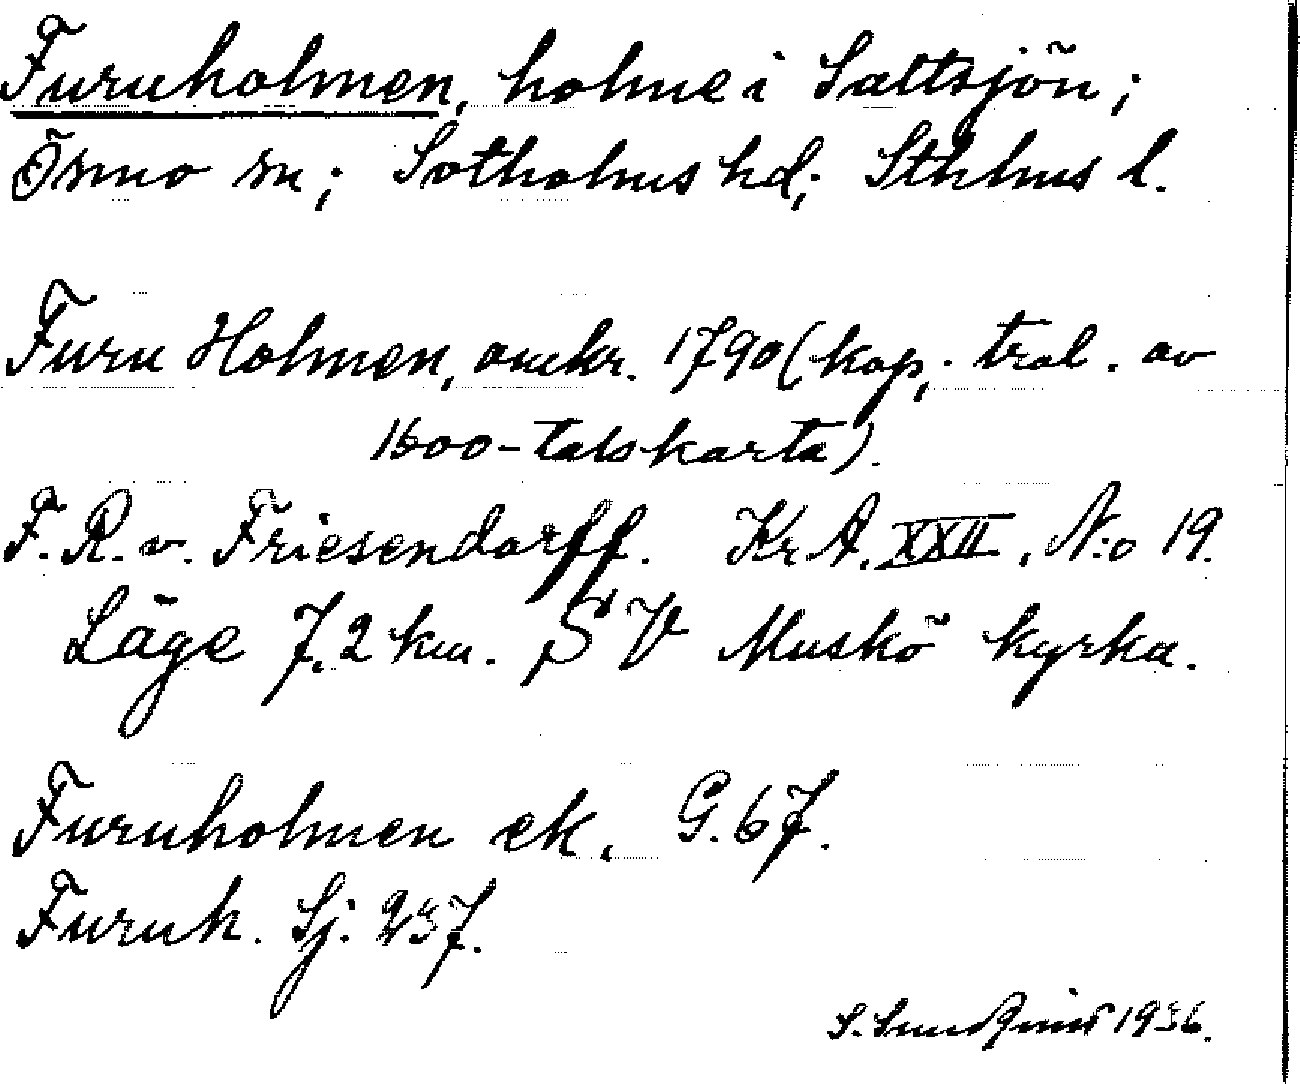 Furuholmen, holme i Saltsjön;
Ösmo sn; Sotholms hd; Sthlms l.
Furu Holmen, omkr. 1790 (kop. trol. av
1600-talskarta).
F. R. v. Friesendorff. Kr A. XXII, N:o 19.
Läge 7,2 km. SV Muskö kyrka.
Furuholmen ek. G. 67.
Furuh. Sj. 237.
S. Sundqvist 1936.